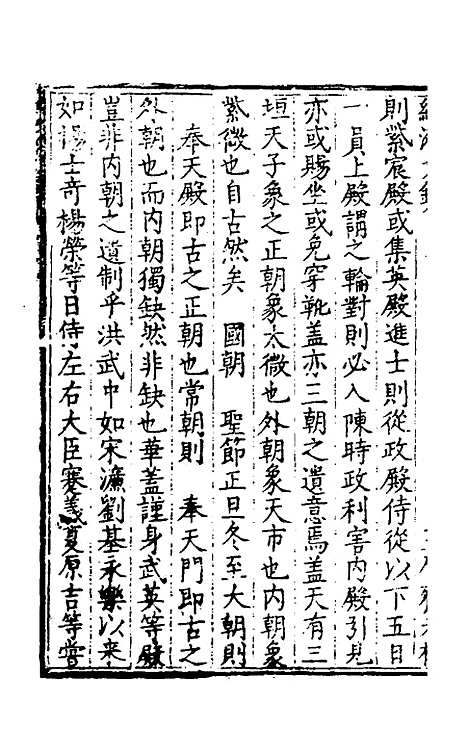 則紫宸殿或集英殿進士則從政殿侍從以下五日
一員上殿謂之輪對則必入陳時政利害內殿引見
亦或賜坐或免穿靴蓋亦三朝之遺意焉蓋天有三
垣天子象之正朝象太微也外朝象天市也內朝象
紫微也自古然矣 國朝 聖節正旦冬至大朝則
奉天殿即古之正朝也常朝則 奉天門即古之
外朝也而內朝獨缺然非缺也華蓋謹身武英等殿
豈非內朝之遺制乎洪武中如宋濂劉基永樂以來
如楊士奇楊榮等日侍左右大臣蹇義夏原吉等嘗